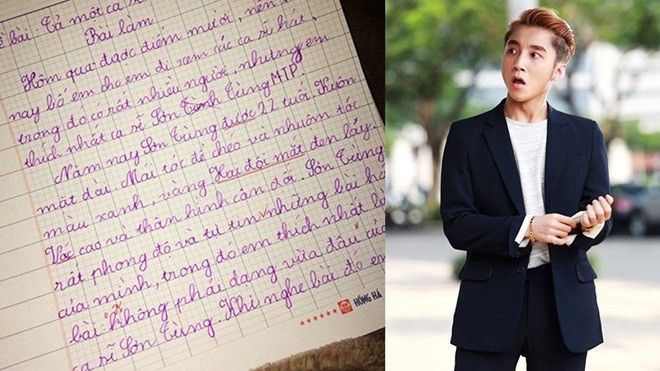 ề bài: Tả một ca sĩ
Bài làm.
Hôm qua được điểm mười, nên
nay bố em cho em đi xem các ca sĩ hát,
trong đó có rất nhiều người, nhưng em
thích nhất ca sĩ Sơn Tùng MTP.
Năm nay Sơn Tùng được 22 tuổi. Khuôn
mặt dài. Mái tóc để chéo và nhuộm tóc
màu xanh, vàng. Hai đôi mắt đen lấy.
Vóc cao và thân hình cân đối. Sơn Tùng
rất phong độ và tự tin những bài há
của mình, trong đó em thích nhất là
bài không phải dạng vừa đâu của
ca sĩ Sơn Tùng. Khi nghe bài đó em
HỒNG HÀ